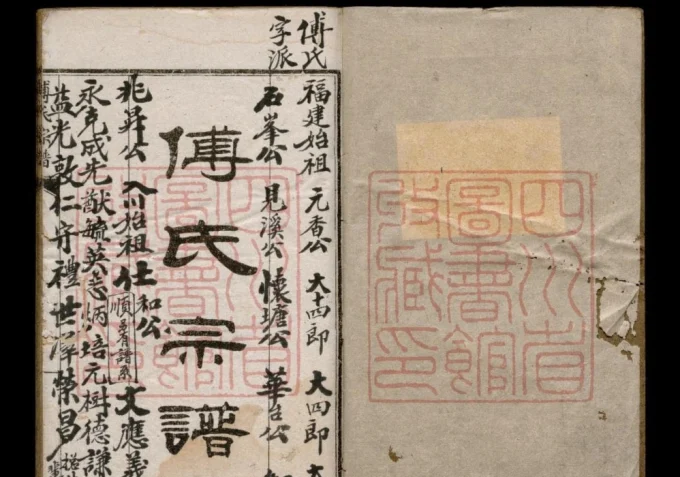 傅氏
字派
福建始祖 元香公 大十四郎 大四郎 大
石峯公 見溪公 懷塘公 華台公
傅氏宗譜
兆昇公 入川始祖 仕
和公
順
文應義
永 成先猷 英 炳培元樹德謙
益光敦仁守禮世 榮昌
四川省
圖書館
收藏印
四川省
圖書館